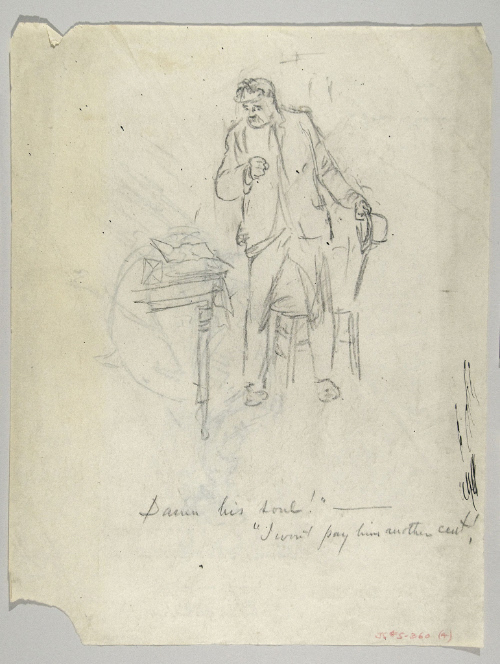 Damn his soul!" —
"I won't pay him another cent!
J4#5-360 (4)